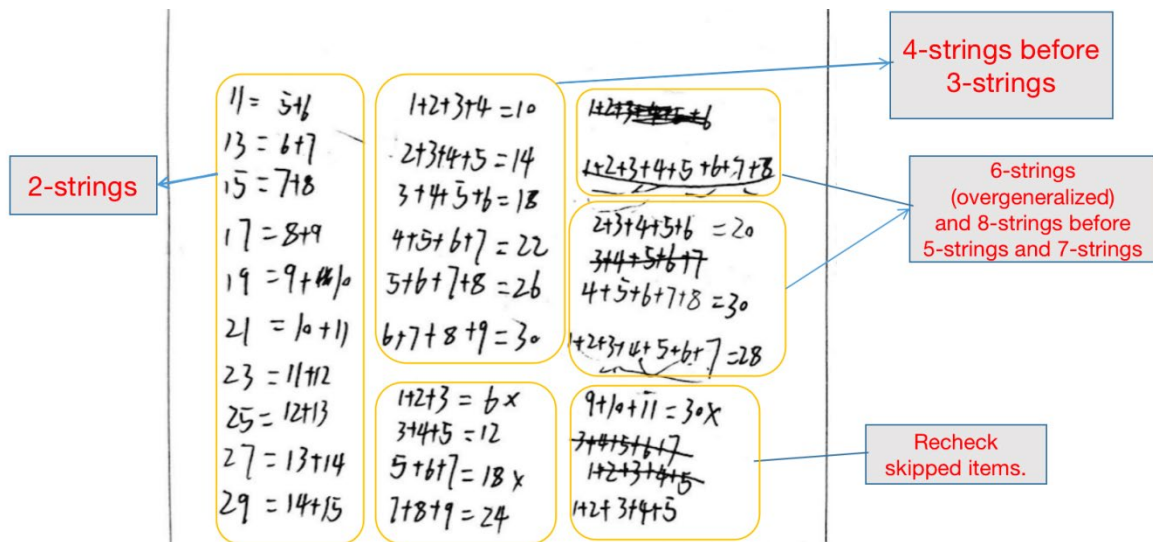 2-strings
11 = 5+6
13 = 6+7
15 = 7+8
17 = 8+9
19 = 9+10
21 = 10+11
23 = 11+12
25 = 12+13
27 = 13+14
29 = 14+15
1+2+3+4 = 10
2+3+4+5 = 14
3+4+5+6 = 18
4+5+6+7 = 22
5+6+7+8 = 26
6+7+8+9 = 30
1+2+3 = 6 x
3+4+5 = 12
5+6+7 = 18 x
7+8+9 = 24
1+2+3+4+5+6
1+2+3+4+5+6+7+8
2+3+4+5+6 = 20
3+4+5+6+7
4+5+6+7+8 = 30
1+2+3+4+5+6+7 = 28
9+10+11 = 30 x
3+4+5+6+7
1+2+3+4+5
1+2+3+4+5
4-strings before
3-strings
6-strings
(overgeneralized)
and 8-strings before
5-strings and 7-strings
Recheck
skipped items.